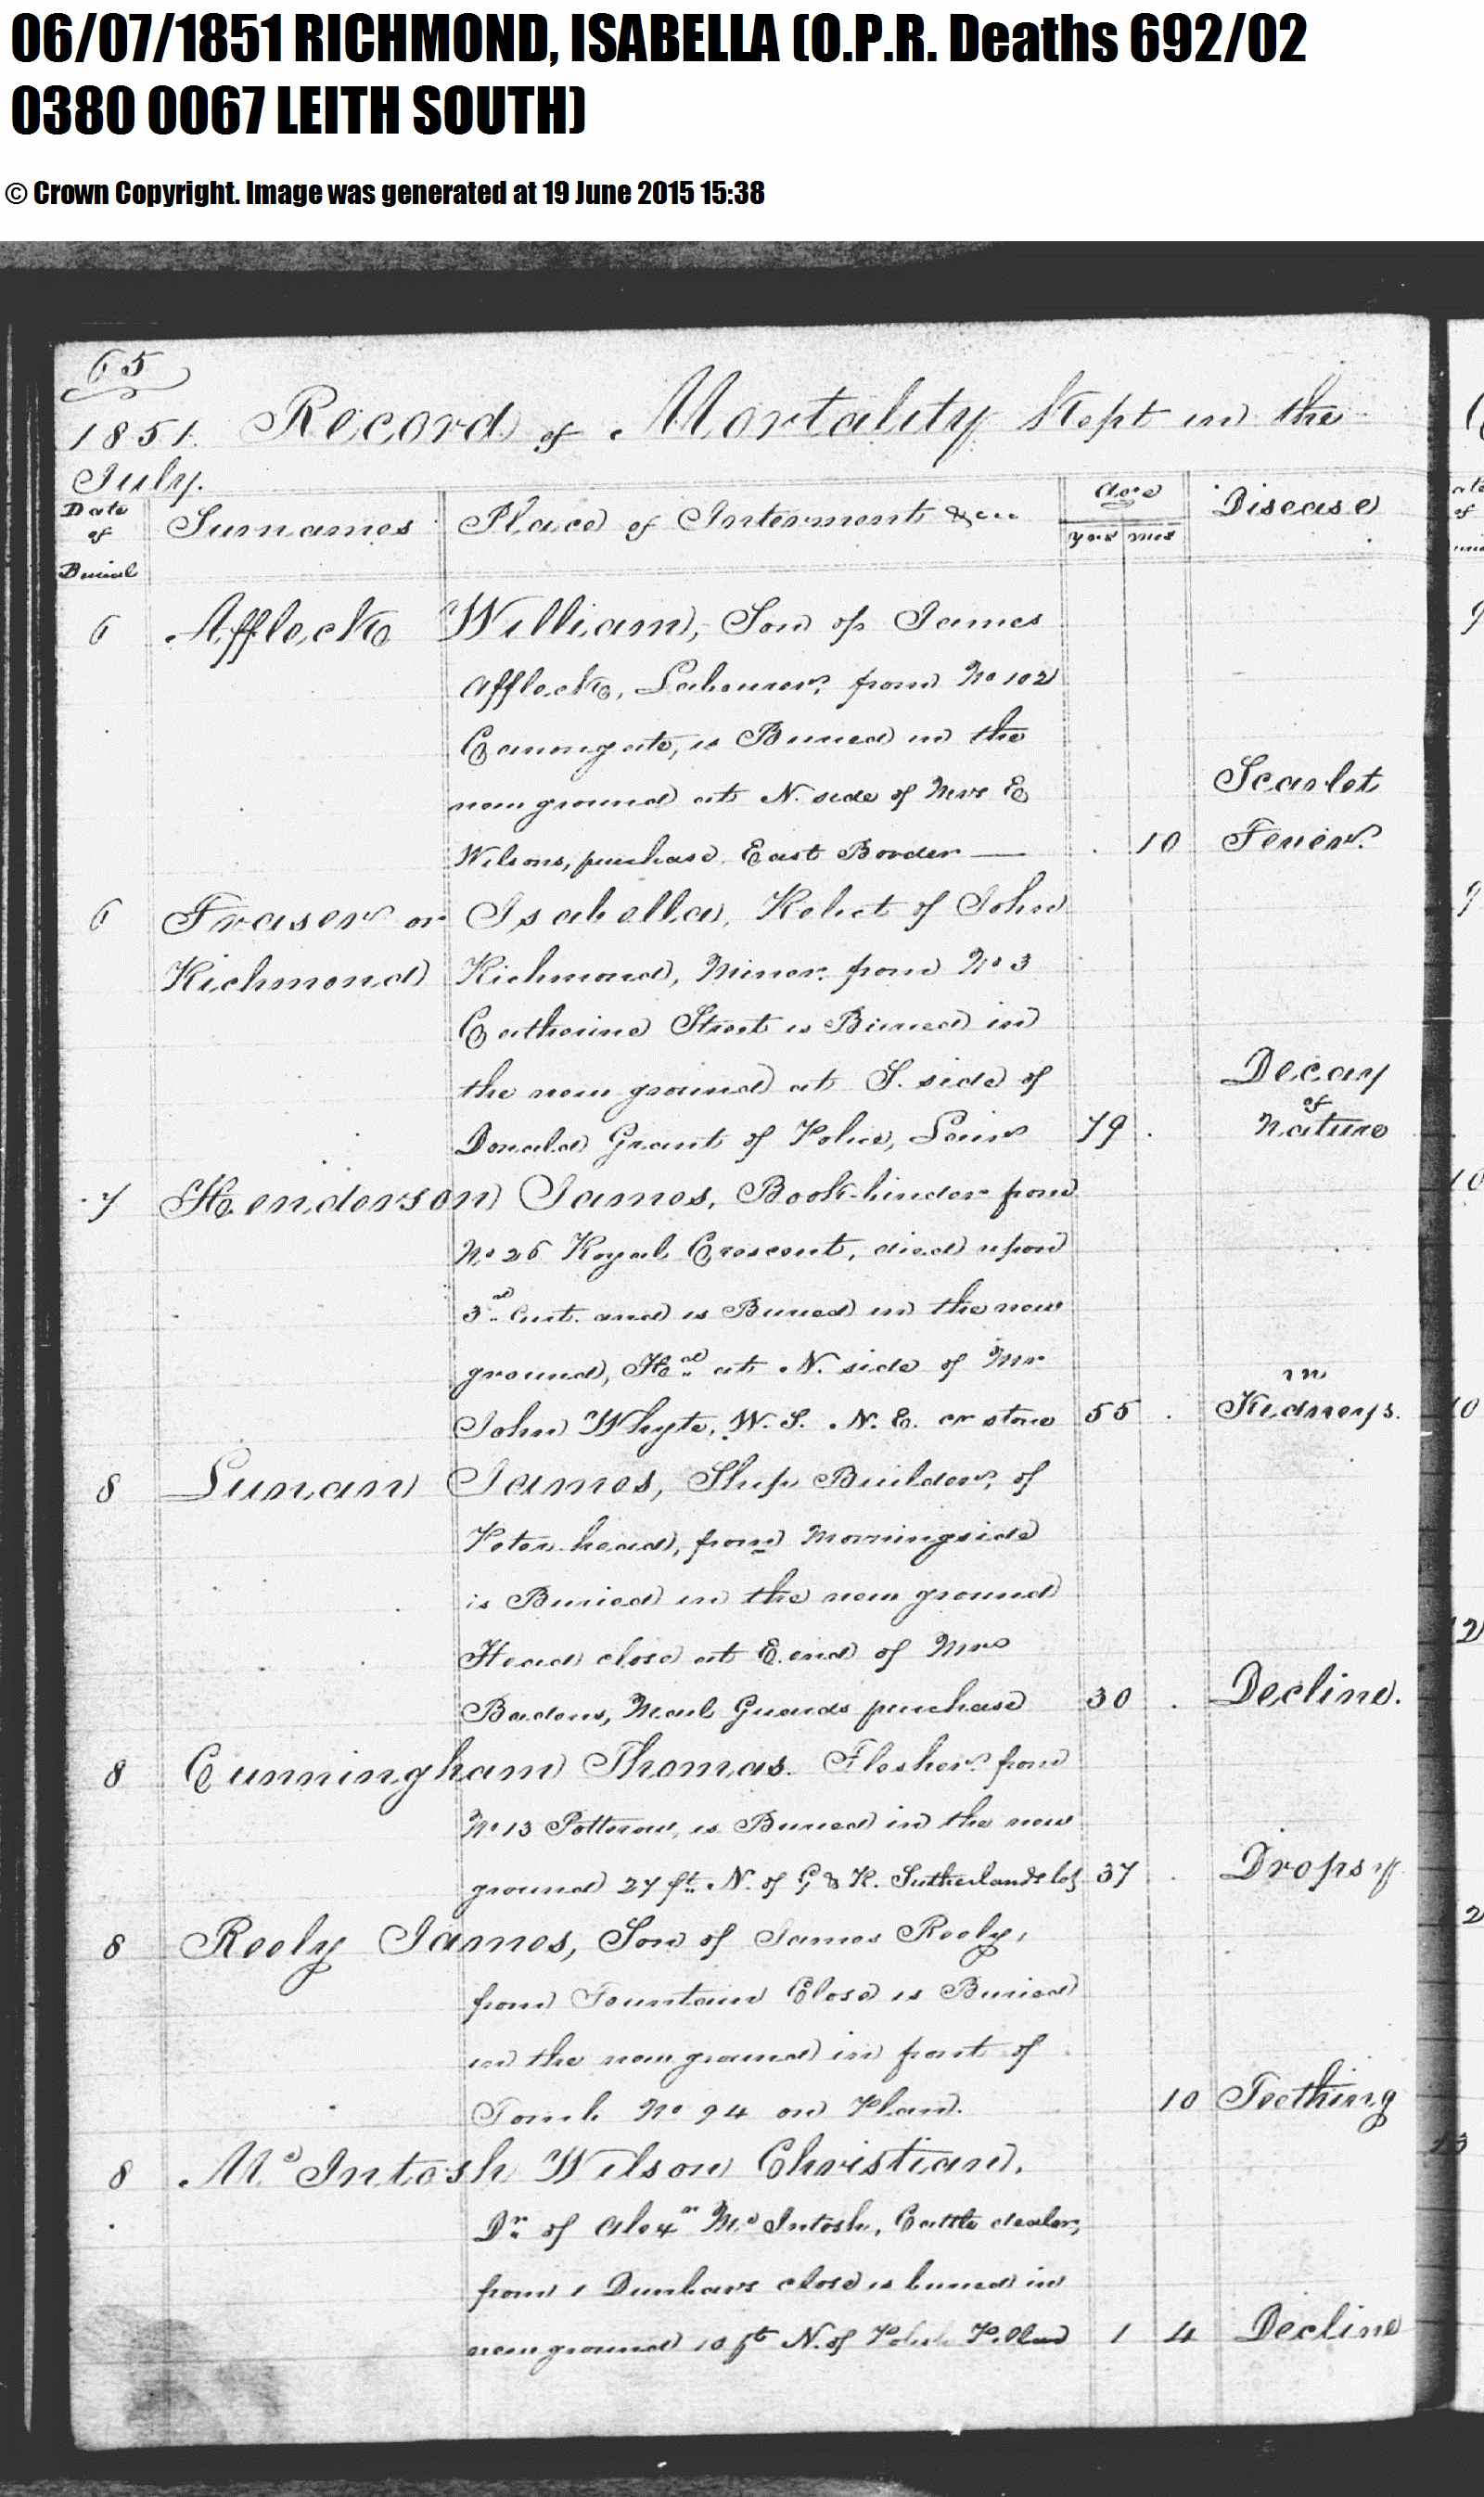 06/07/1851 RICHMOND, ISABELLA (O.P.R. Deaths 692/02
0380 0067 LEITH SOUTH)
© Crown Copyright. Image was generated at 19 June 2015 15:38
65
1851. Record of Mortality Kept in the
July.
Date of Burial Surnames Place of Interment &c. Age yrs mos Disease
6 Affleck William, Son of James
Affleck, Labourer, from No 102
Canongate, is Buried in the
new ground at N. side of Mrs E Scarlet
Wilsons, purchase, East Border — . 10 Fever.
6 Fraser or Isabella, Relict of John
Richmond Richmond, Miner from No 3
Catherine Street is Buried in
the new ground at S. side of Decay of
Donald Grant of Police, 79 . Nature
7 Henderson James, Book-binder from
No 26 Royal Crescent, died upon
3rd Curt. and is Buried in the new
ground, Hd at N. side of Mr in
John Whyte, W. S. N. E. cr stone 55 . Kidneys.
8 Lunan James, Ship Builder, of
Peterhead, from Morningside
is Buried in the new ground
Head close at E. end of Mrs
Mail Guards purchase 30 . Decline.
8 Cunningham Thomas. Flesher from
No 13 Potterow, is Buried in the new
ground 27 ft N. of G & R. Sutherlands 37 . Dropsy
8 Reely James, Son of James Reely,
from Fountain Close is Buried
in the new ground in front of
Tomb No 94 on Plan. 10 Teething
8 McIntosh Wilson Christian,
Dr of Alexr McIntosh, Cattle dealer,
from 1 Dunbars close is buried in
new ground 10 ft N. of 1 4 Decline